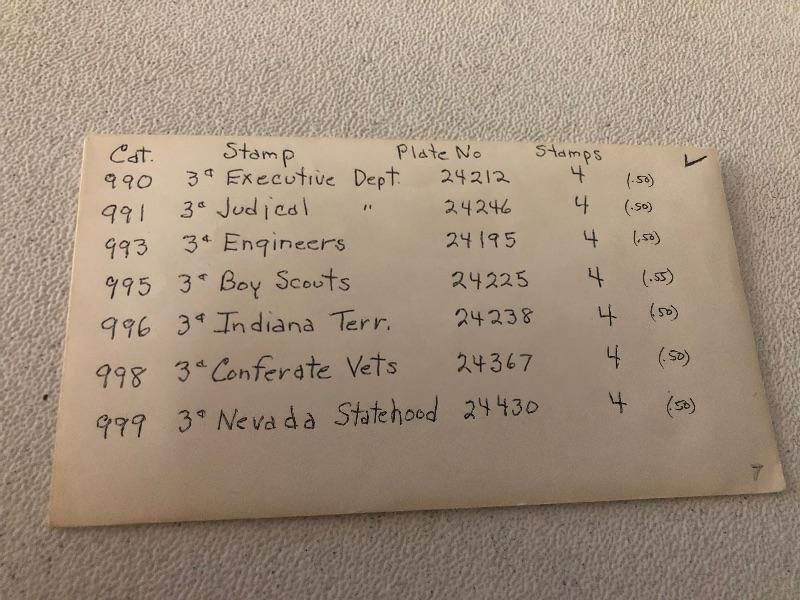 Cat. Stamp Plate No Stamps ✓
990 3¢ Executive Dept. 24212 4 (.50)
991 3¢ Judical " 24246 4 (.50)
993 3¢ Engineers 24195 4 (.50)
995 3¢ Boy Scouts 24225 4 (.55)
996 3¢ Indiana Terr. 24238 4 (.50)
998 3¢ Conferate Vets 24367 4 (.50)
999 3¢ Nevada Statehood 24430 4 (.50)
7